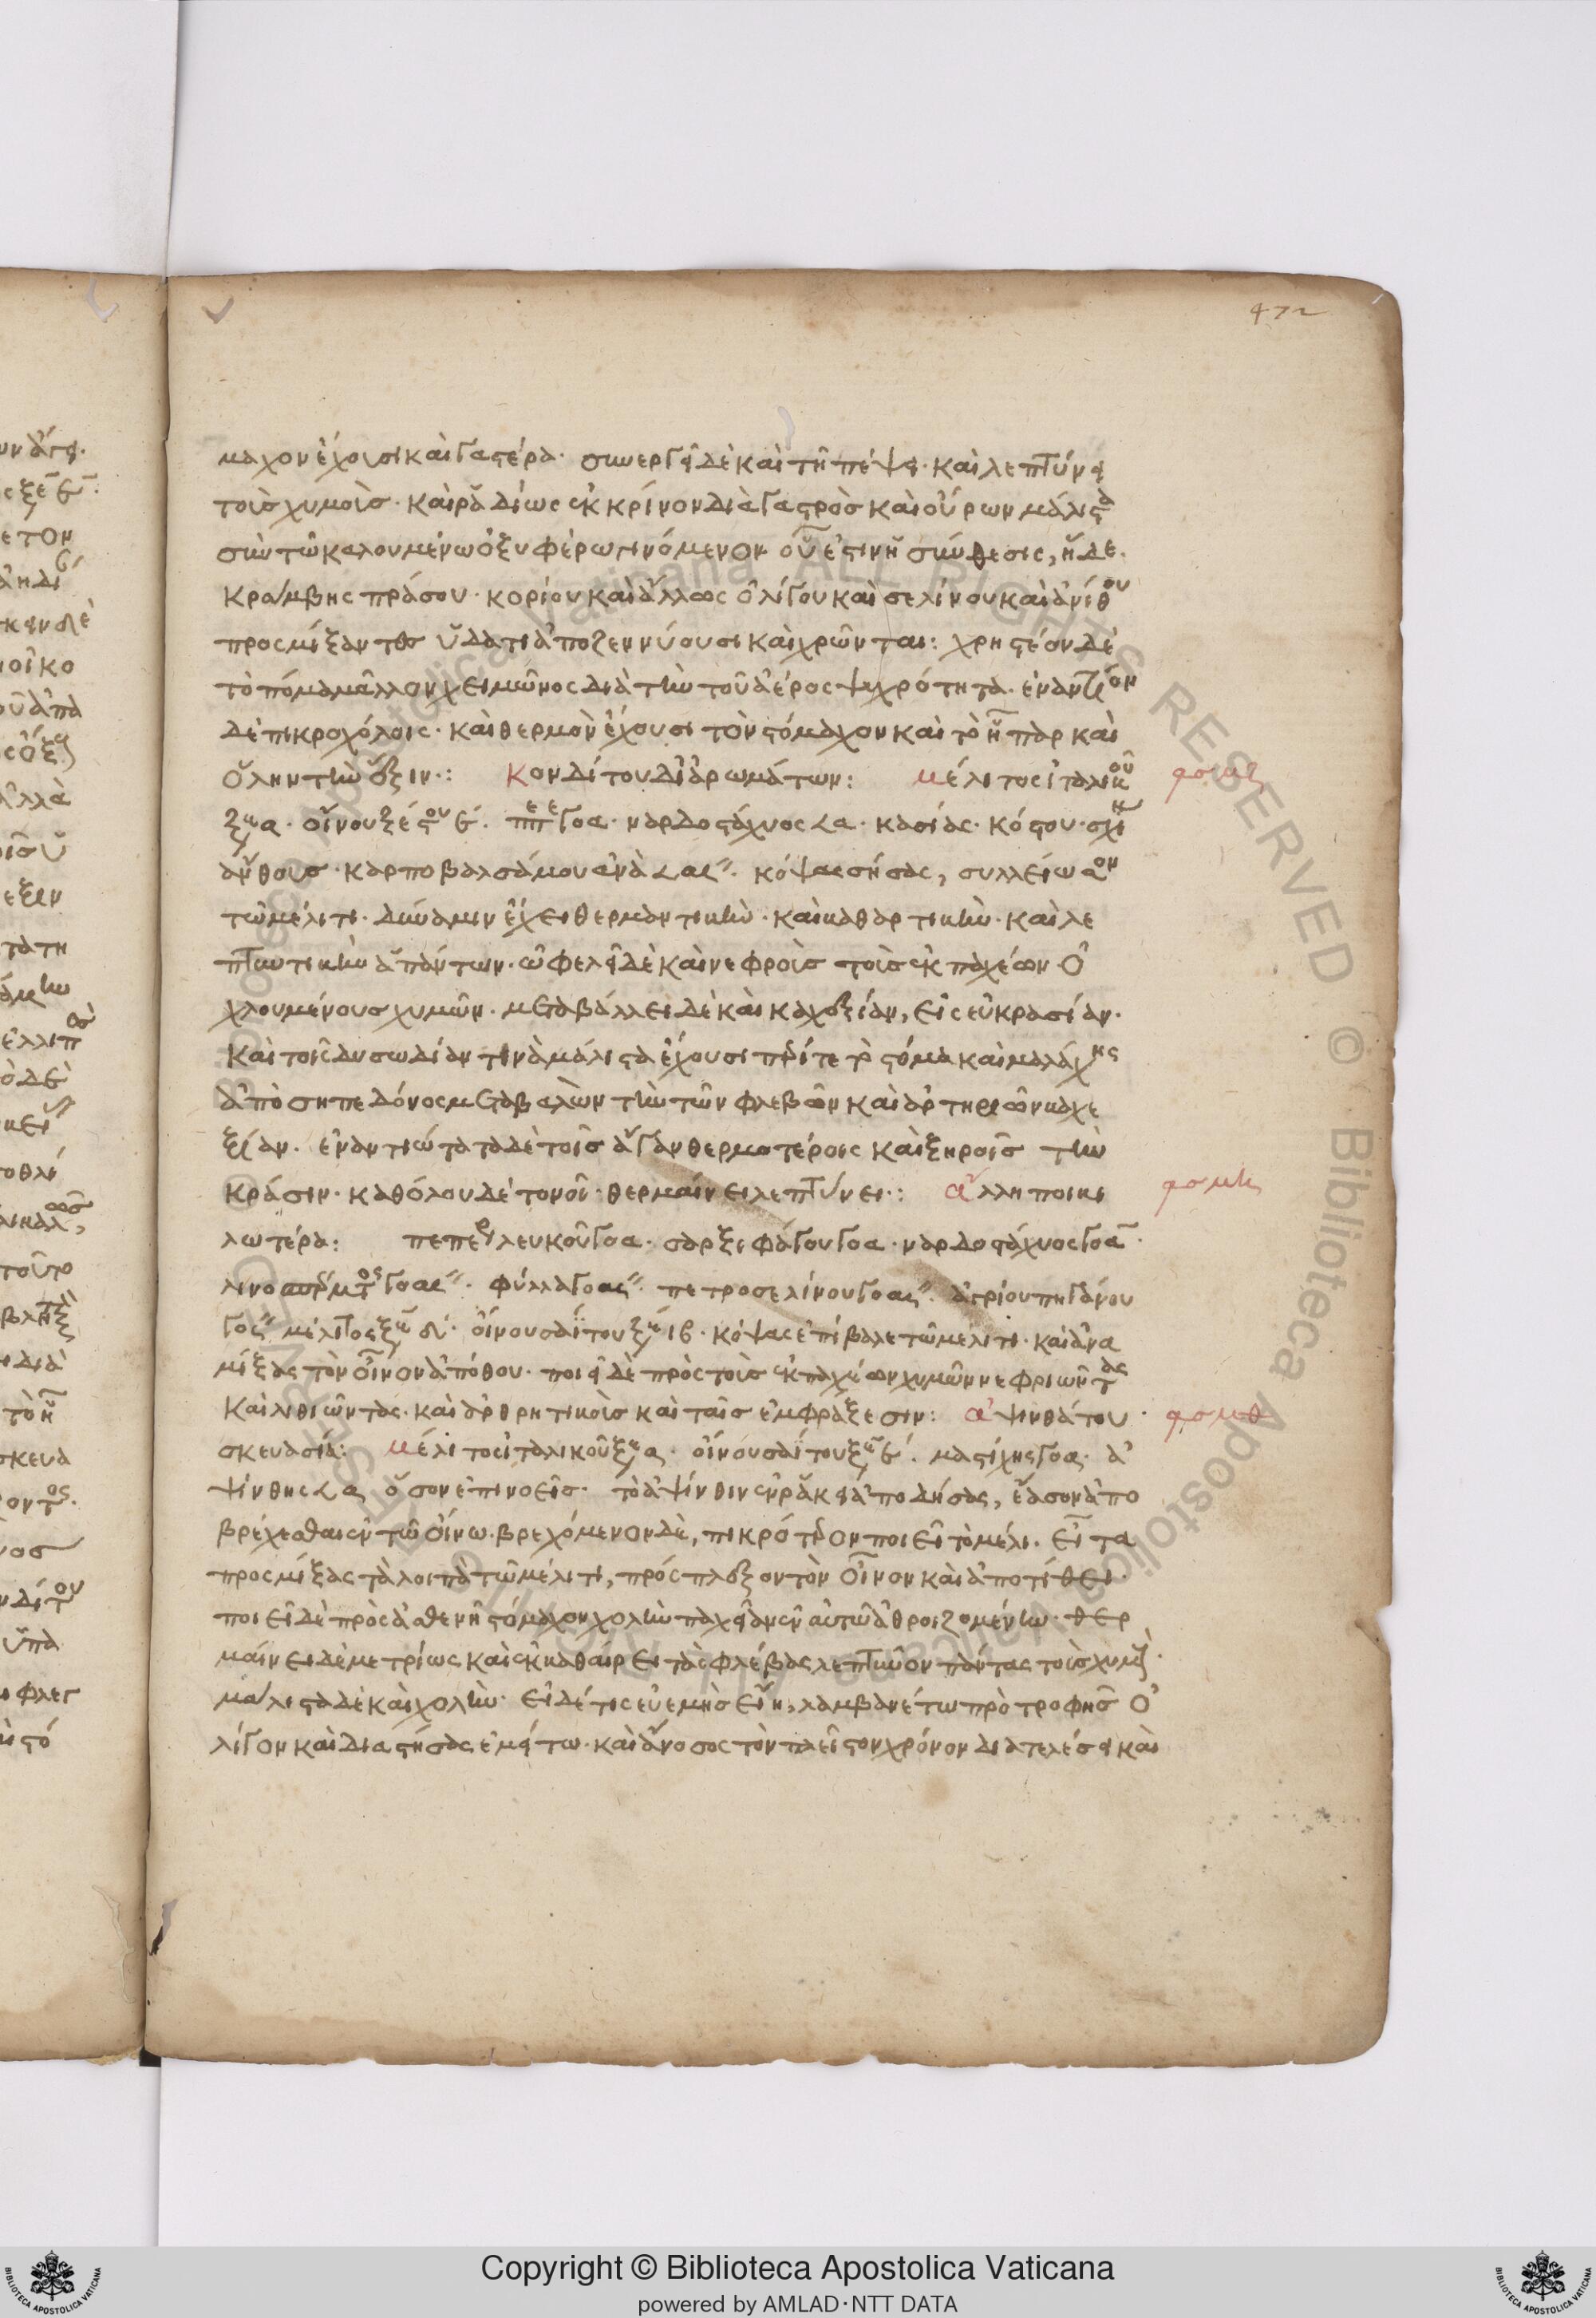 472
μαχον ἔχουσι καὶ γαστέρα· συνεργεῖ δὲ καὶ τῇ πέψει· καὶ λεπτύνει
τοὺς χυμοὺς· καὶ ῥαδίως ἐκκρίνον διὰ γαστρὸς καὶ οὔρων μάλιστα
σὺν τῶ καλουμένω ὀξυφέρω γινόμενον οὗ ἐστιν ἡ σύνθεσις, ἥδε.
κράμβης πράσου· κορίου καὶ ἄλλως ὀλίγου καὶ σελίνου καὶ ἀνίθου
προσμίξαντες ὕδατι ἀποζεννύουσι καὶ χρῶνται: χρηστέον δὲ
τὸ πόμα μᾶλλον χειμῶνος διὰ τὴν τοῦ ἀέρος ψυχρότητα· ἐναντίον
δὲ πικροχόλοις· καὶ θερμὸν ἔχουσι τὸν στόμαχον καὶ τὸ ἧπαρ καὶ
ὅλην τὴν ἕξιν: Κονδίτου δι' ἀρωμάτων: Μέλιτος ἰταλικοῦ φσμζ
ξε α· οἴνου ξέστου ϛ· πεπε γο α· ναρδοστάχυος α· κασίας· κόστου· σχί
ἄνθους· καρποβαλσάμου ἀνὰ α ϛ· κόψας σήσας, συλλείωσον
τῶ μέλιτι· δύναμιν ἔχει θερμαντικὴν· καὶ καθαρτικὴν· καὶ λε
πτυντικὴν ἁπάντων· ὠφελεῖ δὲ καὶ νεφροὺς τοὺς ἐκ παχέων ὀ
χλουμένους χυμῶν· μεταβάλλει δὲ καὶ καχεξίαν, εἰς εὐκρασίαν·
καὶ τοῖς δυσωδίαν τινὰ μάλιστα ἔχουσι περί τε τὸ στόμα καὶ μαλάχης
ἀπὸ σηπεδόνος μεταβαλὼν τὴν τῶν φλεβῶν καὶ ἀρτηριῶν καχε
ξίαν· ἐναντιώτατα δὲ τοῖς ἄγαν θερμοτέροις καὶ ξηροῖς τὴν
κράσιν· καθόλου δὲ τονοῖ· θερμαίνει λεπτύνει: ἄλλη ποικι φσμη
λωτέρα: πεπέρεως λευκοῦ γο α· σαρξιφάγου γο α· ναρδοστάχυος γο α·
λινοσπέρματος γο α ϛ· φύλλα γο α ϛ· πετροσελίνου γο α ϛ· ἀγρίου πηγάνου
γο ϛ μέλιτος ξε δ· οἴνου σαΐτου ξε ιβ· κόψας ἐπίβαλε τῶ μέλιτι· καὶ ἀνα
μίξας τὸν οἶνον ἀπόθου· ποιεῖ δὲ πρὸς τοὺς ἐκ παχέων χυμῶν νεφριῶντας
καὶ λιθιῶντας· καὶ ἀρθρητικοὺς καὶ ταῖς ἐμφράξεσιν: ἀψινθάτου φσμθ
σκευασία: Μέλιτος ἰταλικοῦ ξε α· οἴνου σαΐτου ξε ϛ· μαστίχης γο α· ἀ
ψίνθης α ὅσον ἐπινοεῖς· τὸ ἀψίνθιν ἐν ῥάκει ἀποδήσας, ἔασον ἀπο
βρέχεσθαι ἐν τῶ οἴνω· βρεχόμενον δὲ, πικρότερον ποιεῖ τὸ μέλι. εἶτα
προσμίξας τὰ λοιπὰ τῶ μέλιτι, πρόσπλεξον τὸν οἶνον καὶ ἀποτίθει·
ποιεῖ δὲ πρὸς ἀσθενῆ στόμαχον χολὴν παχεῖαν ἐν αὐτῶ ἀθροιζομένην· θερ
μαίνει δὲ μετρίως καὶ ἐκκαθαίρει τὰς φλέβας λεπτῦνον πάντας τοὺς χυμούς·
μάλιστα δὲ καὶ χολὴν· εἰ δέ τις εὐεμὴς εἴη, λαμβανέτω πρὸ τροφῆς ὀ
λίγον καὶ διαστήσας ἐμείτω· καὶ ἄνοσος τὸν πλεῖστον χρόνον διατελέσει καὶ
Copyright © Biblioteca Apostolica Vaticana
powered by AMLAD·NTT DATA